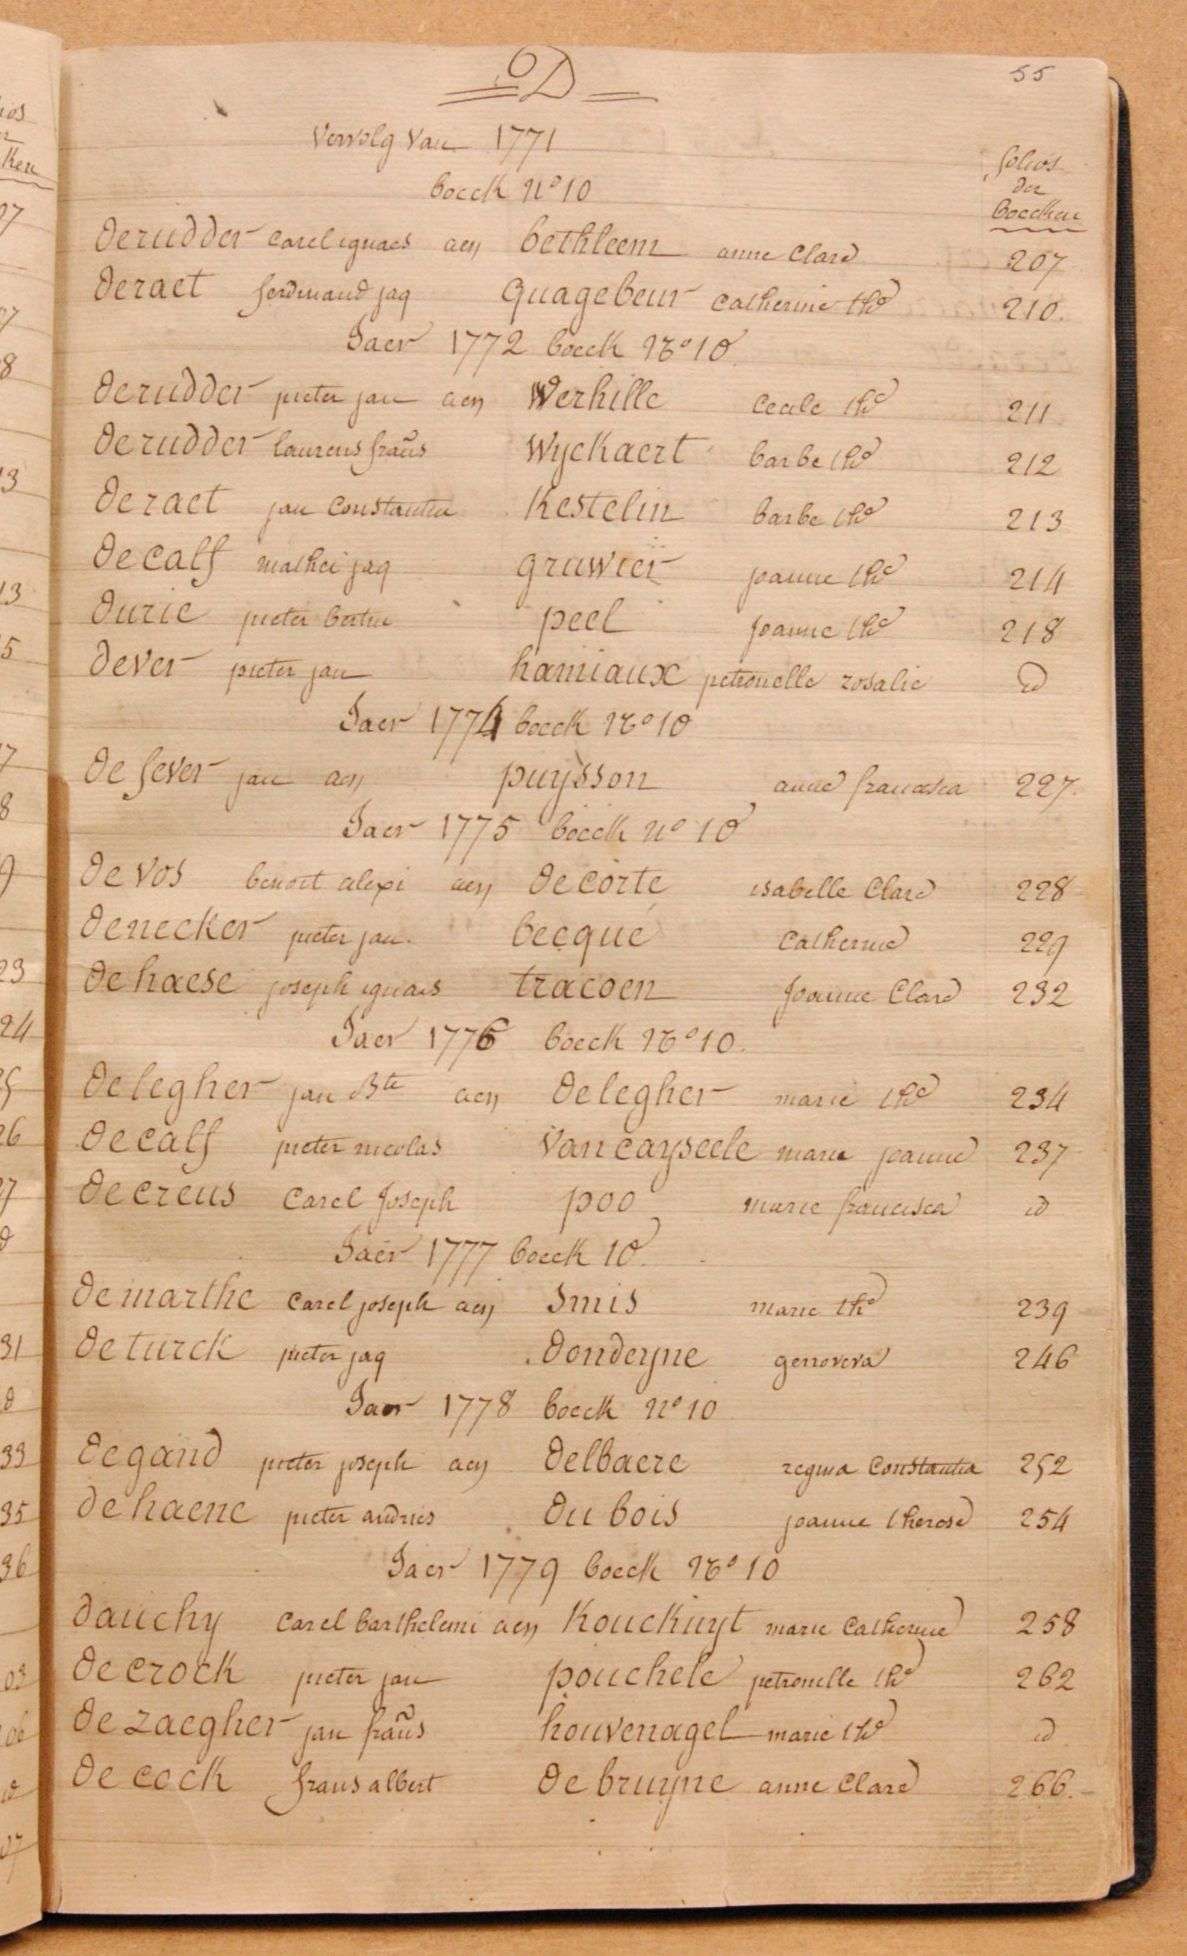 D
55
Vervolg van 1771
folios
der
boecken
boeck n° 10
derudder carel ignaes aen bethleem anne Clare 207
deraet ferdinand jaq quagebeur catherine thé 210.
Jaer 1772 boeck N° 10
derudder pieter jan aen Werhille cecile thé 211
derudder laurens frañs Wyckaert barbe thé 212
deraet jan constantin Kestelin barbe thé 213
decalf mathei jaq gruwier joanne thé 214
durie pieter bertin peel joanne thé 218
dever pieter jan hamiaux petronelle rosalie id
Jaer 1774 boeck N° 10
de fever jan aen puysson anne francisca 227.
Jaer 1775 boeck n° 10
de vos benoit alexi aen de corte isabelle Clare 228
denecker pieter jan. becque catherine 229
de haese joseph ignaes tracoen joanne Clare 232
Jaer 1776 boeck N° 10.
delegher jan Bte aen delegher marie thé 234
decalf pieter nicolas Vancayseele marie joanne 237
decreus Carel Joseph poo marie francisca id
Jaer 1777 boeck 10.
de marthe Carel joseph aen Smis marie thé 239
de turck pieter jaq dondeyne genoveva 246
Jaer 1778 boeck n° 10
degand pieter joseph aen delbaere regina Constantia 252
de haene pieter andries du bois joanne therese 254
Jaer 1779 boeck N° 10
dauchy Carel barthelemi aen Kouckuyt marie Catherine 258
decrock pieter jan pouchele petronelle thé 262
de zaegher jan frañs houvenagel marie thé id
de cock frans albert de bruyne anne Clare 266.